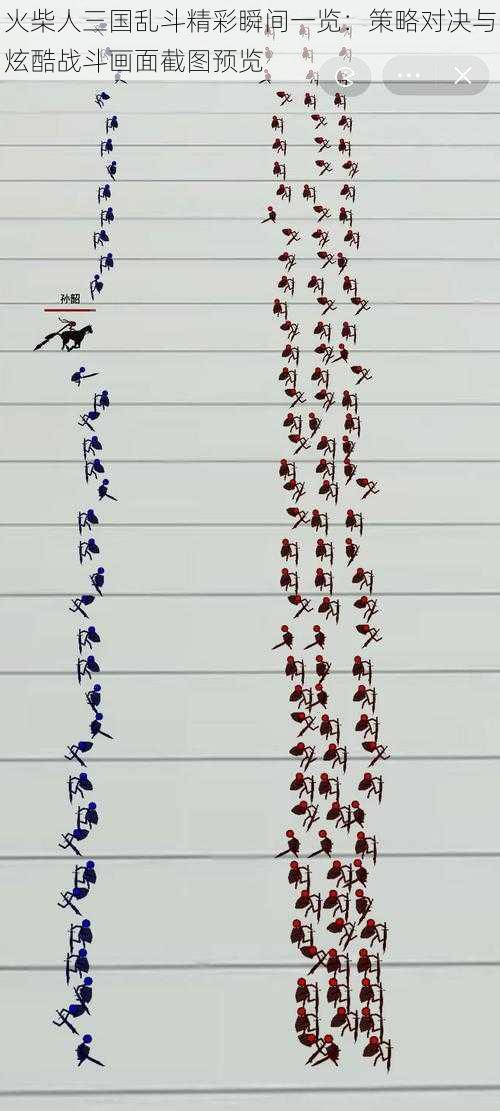 火柴人三国乱斗精彩瞬间一览：策略对决与
炫酷战斗画面截图预览
孙韶